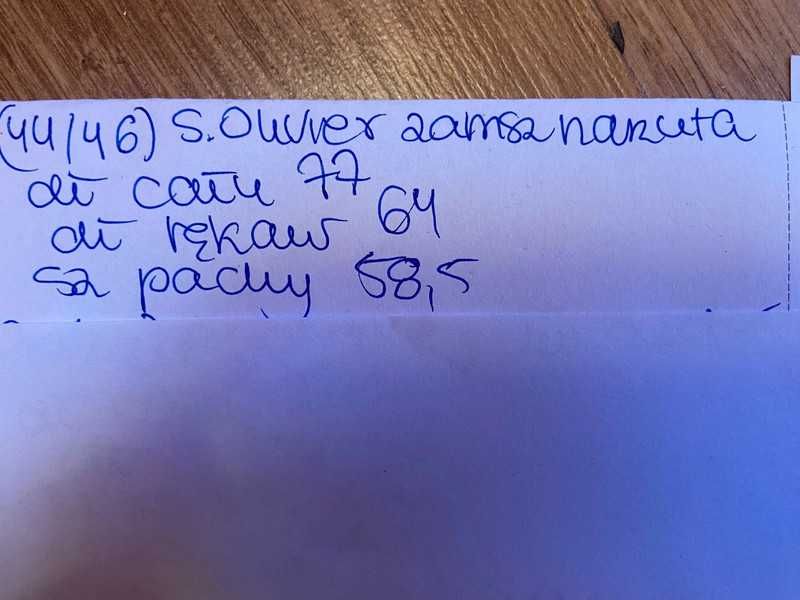 (44/46) S.Oliver zamsz nakuta
dł całk 77
dł rękaw 64
sz pachy 58,5